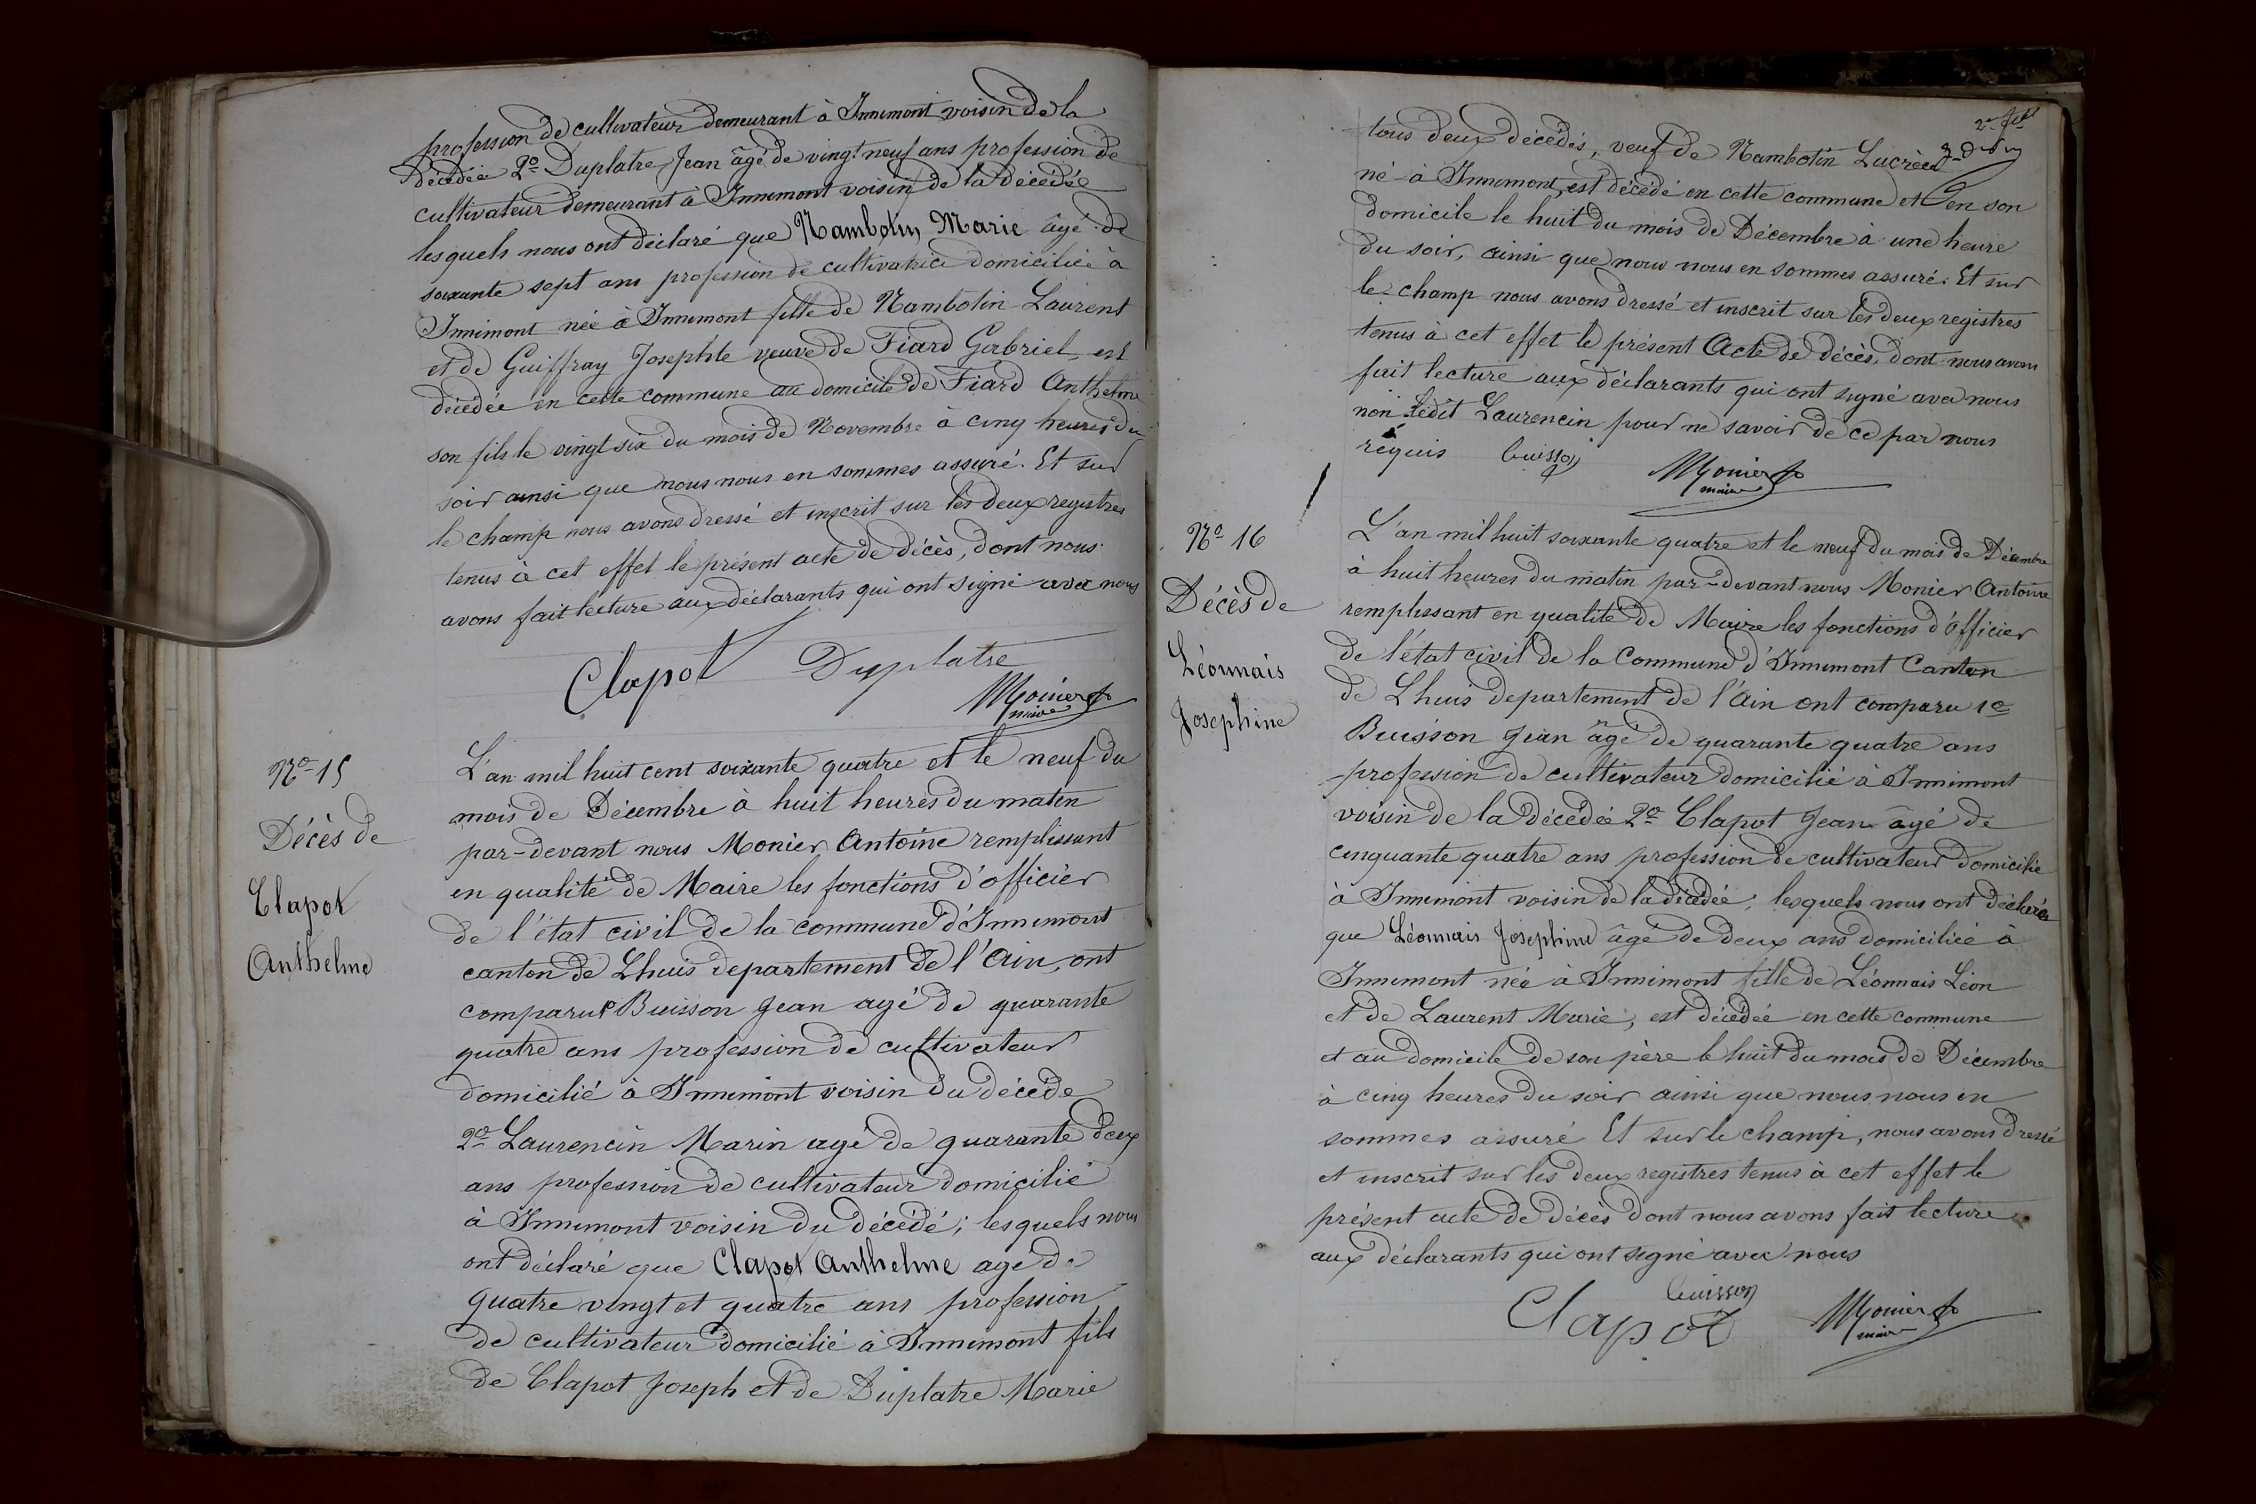 profession de cultivateur demeurant à Innimont voisin de la
décédée 2º Duplatre Jean âgé de vingt neuf ans profession de
cultivateur demeurant à Innimont voisin de la décédée
lesquels nous ont déclaré que Nambotin Marie âgé de
soixante sept ans profession de cultivatrice domiciliée à
Innimont née à Innimont fille de Nambotin Laurent
et de Guiffray Josephte veuve de Fiard Gabriel, est
décédée en cette commune au domicile de Fiard Anthelme
son fils le vingt six du mois de Novembre à cinq heures du
soir ainsi que nous nous en sommes assuré. Et sur
le champ nous avons dressé et inscrit sur les deux registres
tenus à cet effet le présent acte de décès, dont nous
avons fait lecture aux déclarants qui ont signé avec nous
Clapot Duplatre
Monier
maire
Nº 15
Décès de
Clapot
Anthelme
L'an mil huit cent soixante quatre et le neuf du
mois de Décembre à huit heures du matin
par-devant nous Monier Antoine remplissant
en qualité de Maire les fonctions d'officier
de l'état civil de la commune d'Innimont
canton de Lhuis departement de l'Ain, ont
comparu Buisson Jean agé de quarante
quatre ans profession de cultivateur
domicilié à Innimont voisin du décédé
2º Laurencin Marin agé de quarante deux
ans profession de cultivateur domicilié
à Innimont voisin du décédé; lesquels nous
ont déclaré que Clapot Anthelme age de
quatre vingt et quatre ans profession
de cultivateur domicilié à Innimont fils
de Clapot Joseph et de Duplatre Marie
tous deux décédés, veuf de Nambotin Lucrèce
né à Innimont, est décédé en cette commune et en son
domicile le huit du mois de Décembre à une heure
du soir, ainsi que nous nous en sommes assuré. Et sur
le champ nous avons dressé et inscrit sur les deux registres
tenus à cet effet le présent Acte de décès, dont nous avons
fait lecture aux déclarants qui ont signé avec nous
non ledit Laurencin pour ne savoir de ce par nous
requis Buisson Monier
maire
Nº 16
Décès de
Léonnais
Josephine
L'an mil huit soixante quatre et le neuf du mois de Décembre
à huit heures du matin par-devant nous Monier Antoine
remplissant en qualité de Maire les fonctions d'officier
de l'état civil de la Commune d'Innimont Canton
de Lhuis departement de l'Ain ont comparu 1º
Buisson Jean âgé de quarante quatre ans
profession de cultivateur domicilié à Innimont
voisin de la décédée 2º Clapot Jean âgé de
cinquante quatre ans profession de cultivateur domicilié
à Innimont voisin de la décédée; lesquels nous ont déclaré
que Léonnais Josephine âgé de deux ans domiciliée à
Innimont née à Innimont fille de Léonnais Léon
et de Laurent Marie, est décédée en cette commune
et au domicile de son père le huit du mois de Décembre
à cinq heures du soir ainsi que nous nous en
sommes assuré Et sur le champ, nous avons dressé
et inscrit sur les deux registres tenus à cet effet le
présent acte de décès dont nous avons fait lecture
aux déclarants qui ont signé avec nous
Buisson
Clapot Monier
maire